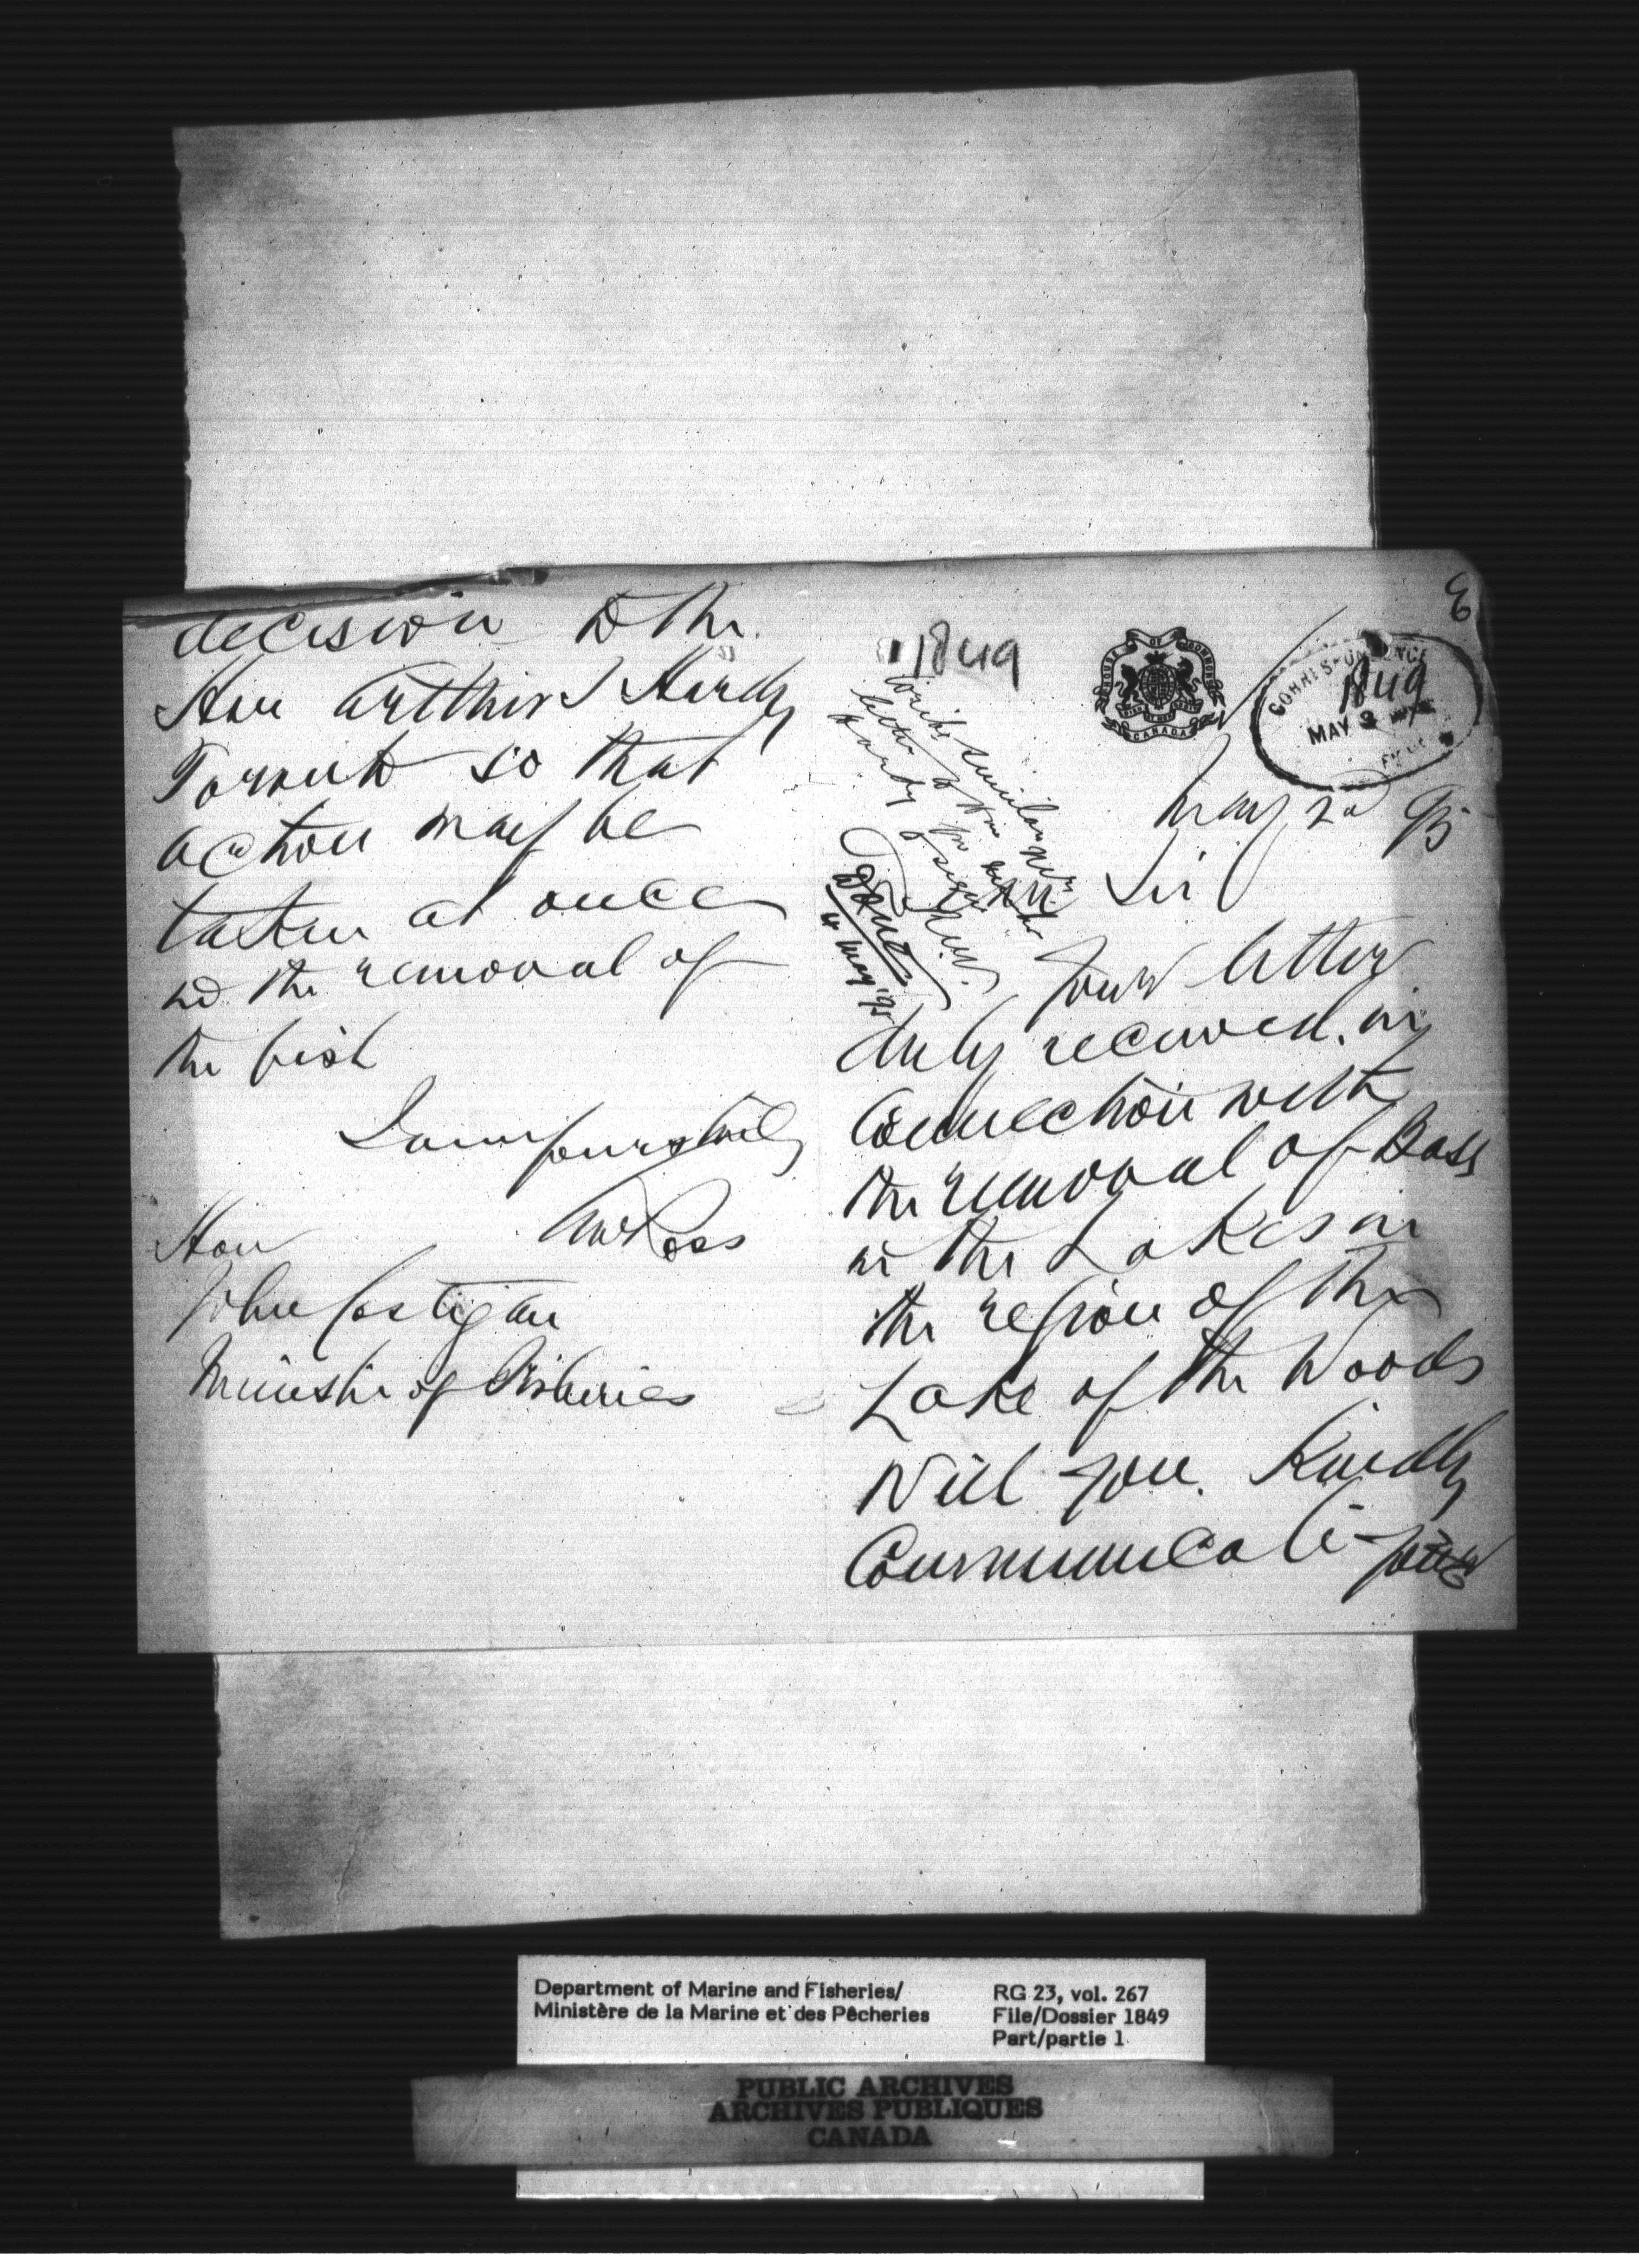 1849
HOUSE OF COMMONS
CANADA
CORRESPONDENCE
1849
MAY 3
May 2d 95
Sir
Your letter
duly received. in
Connection with
the removal of Bass
in the Lakes in
the region of the
Lake of the Woods
Will you. Kindly
Communicate your
decision to the
Hon Arthur S Hardy
Toronto so that
action may be
taken at once
in the removal of
the fish
I am yours truly
AW Ross
Hon
John Costigan
Minister of Fisheries
Write similar
letter to
Hardy
Done
4 May '95
Department of Marine and Fisheries/
Ministère de la Marine et des Pêcheries
RG 23, vol. 267
File/Dossier 1849
Part/partie 1
PUBLIC ARCHIVES
ARCHIVES PUBLIQUES
CANADA